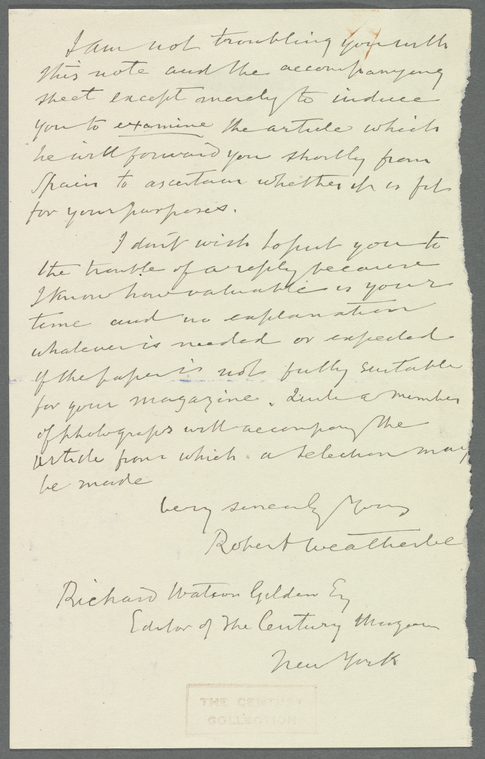 I am not troubling you with
this note and the accompanying
sheet except merely to induce
you to examine the article which
he will forward you shortly from
Spain to ascertain whether it is fit
for your purposes.
I don't wish to put you to
the trouble of a reply because
I know how valuable is your
time and no explanation
whatever is needed or expected
if the paper is not fully suitable
for your magazine. Quite a number
of photographs will accompany the
article from which a selection may
be made
Very sincerely Yours
Robert Weatherbee
Richard Watson Gilder Esq
Editor of The Century Magazine
New York
THE CENTURY
COLLECTION